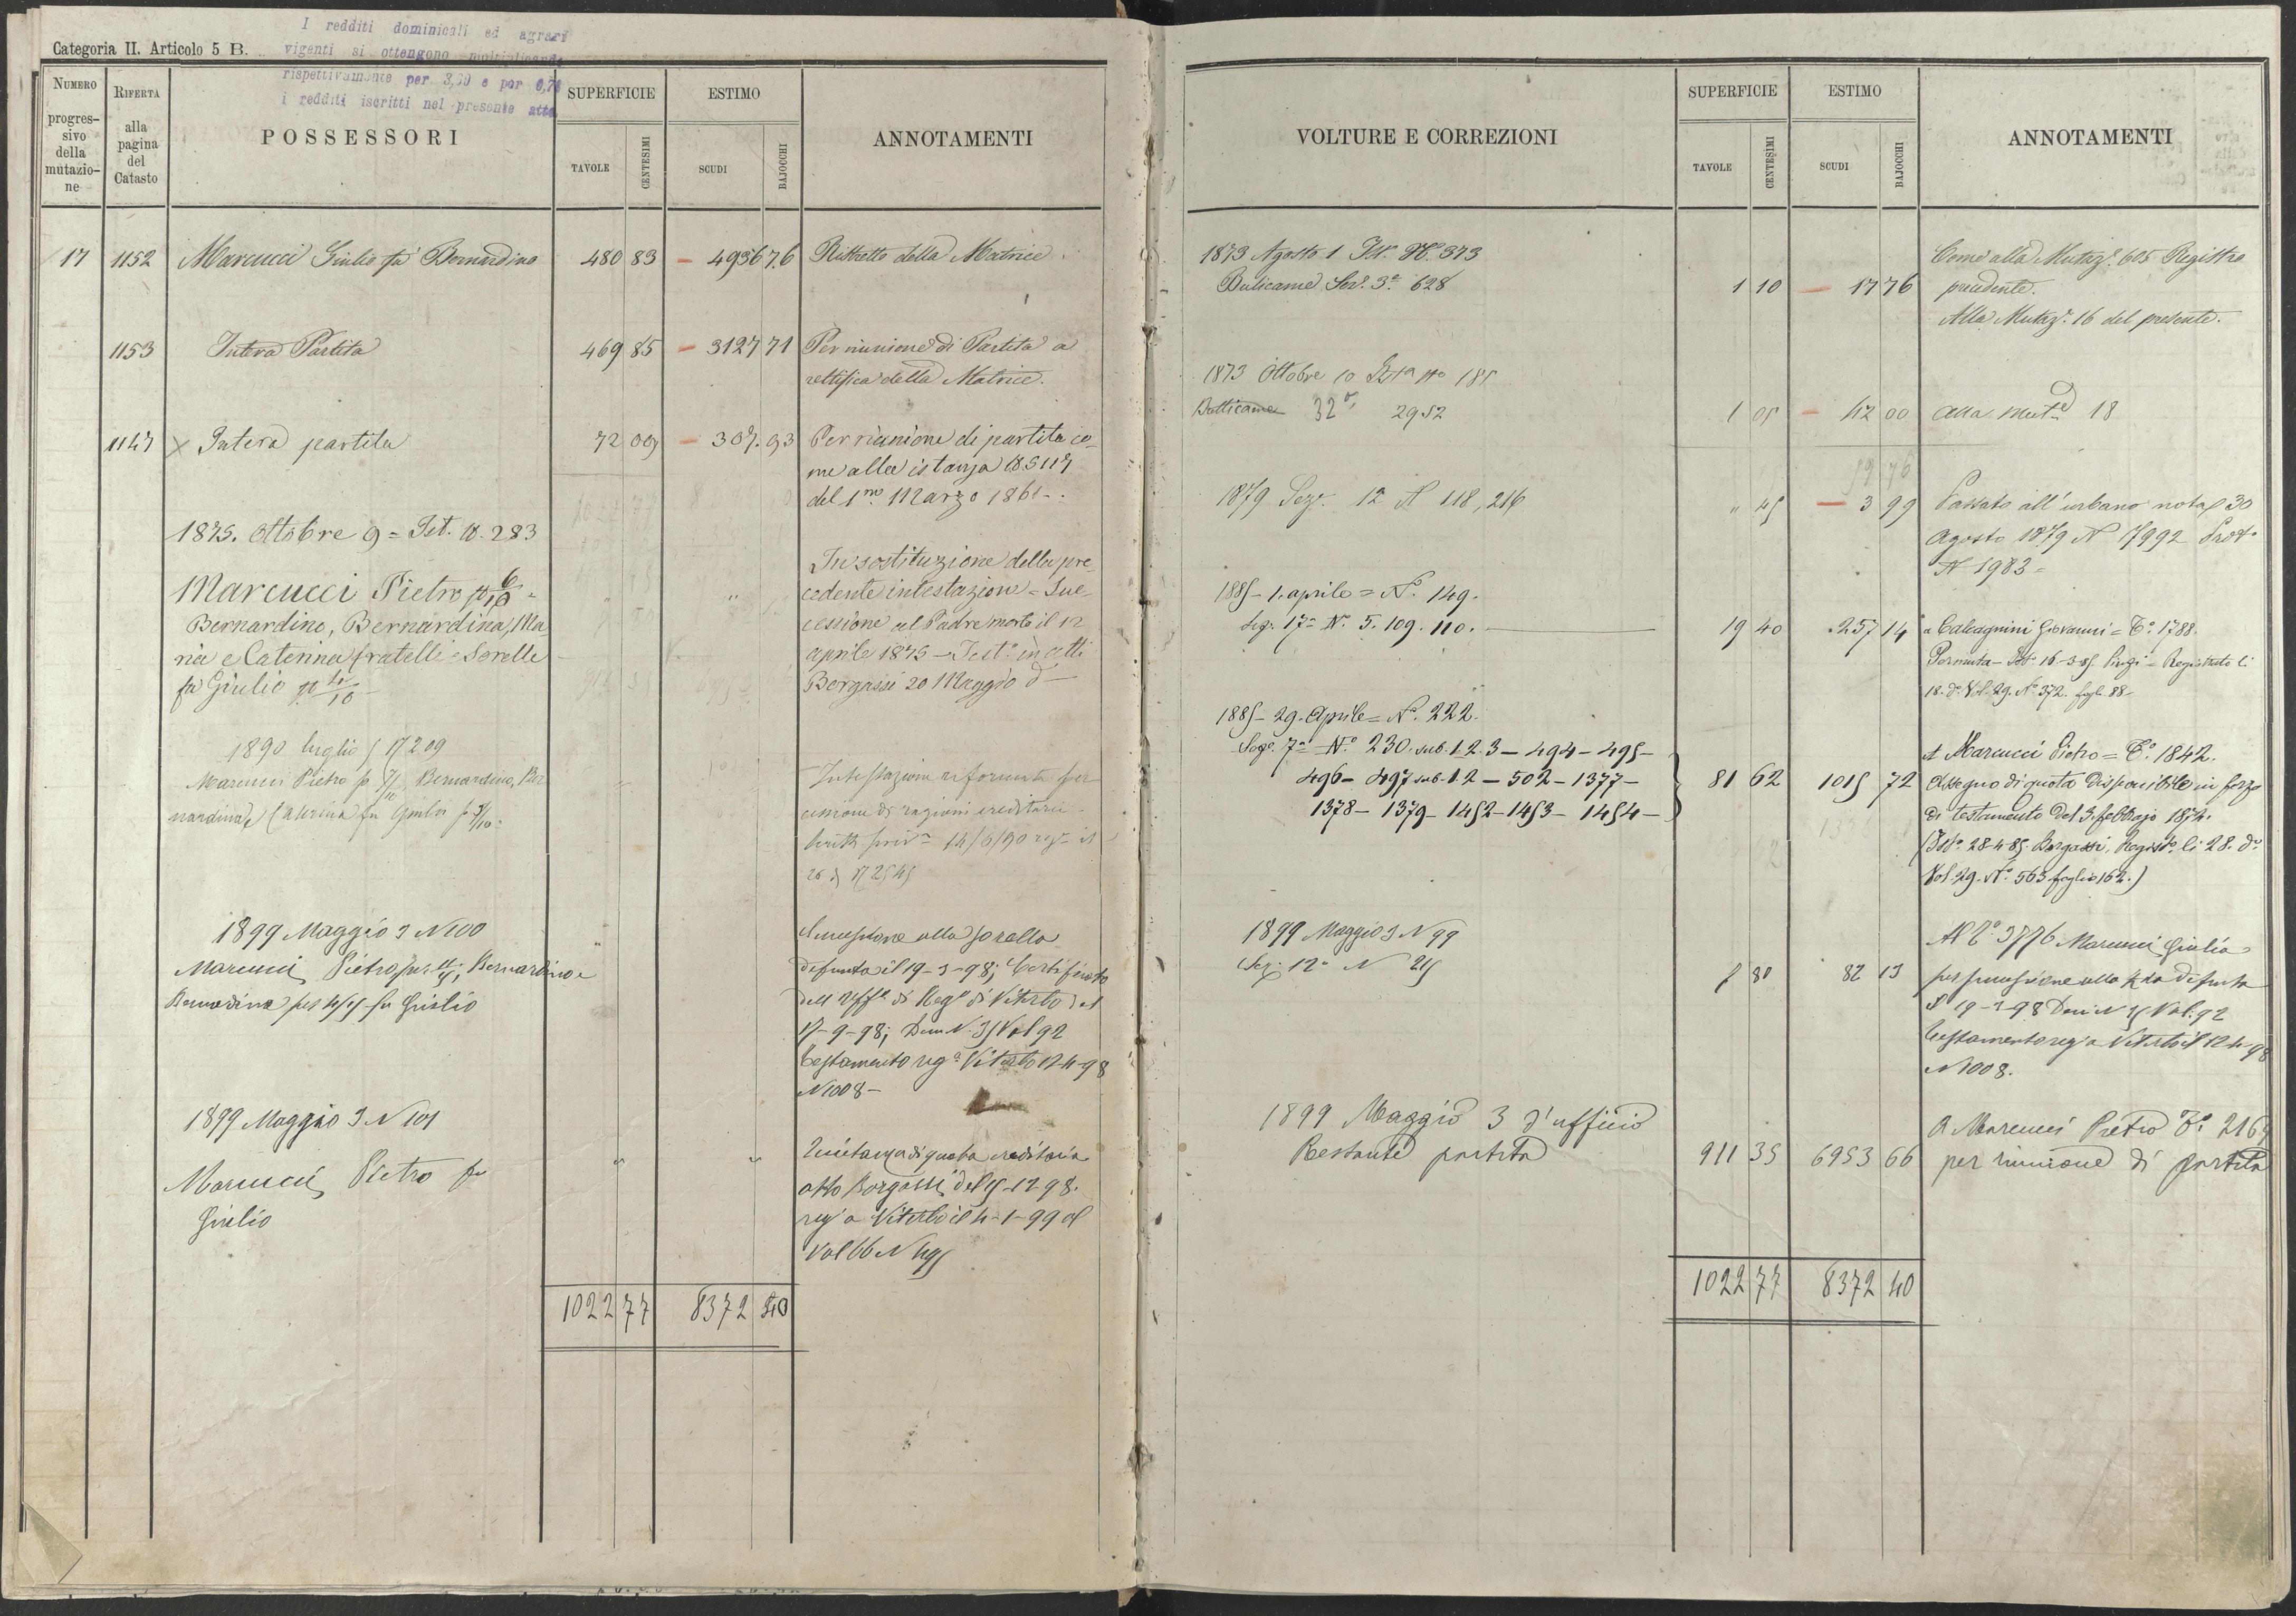 Categoria II. Articolo 5 B.
I redditi dominicali ed agrari
vigenti si ottengono moltiplicando
rispettivamente per 3,60 e per 0,7
i redditi iscritti nel presente atto
NUMERO progres-
sivo
della
mutazio-
ne
RIFERTA
alla
pagina
del
Catasto
POSSESSORI
SUPERFICIE
TAVOLE
CENTESIMI
ESTIMO
SCUDI
BAJOCCHI
ANNOTAMENTI
17 1152 Marcucci Giulio fu Bernardino 480 83 4936 76 Ristretto della Matrice
1153 Intera Partita 469 85 3127 71 Per riunione di Partita a
rettifica della Matrice.
1147 x Intera partita 72 09 307.93 Per riunione di partita co-
me alla istanza
del 1mo Marzo 186
1875. Ottobre 9 = Ist. N. 283
Marcucci Pietro p 6/10 =
Bernardino, Bernardina, Ma
ria e Caterina fratelli e Sorelle
fu Giulio p 4/10
In sostituzione della pre
cedente intestazione = Suc
cessione al Padre morto il 12
aprile 1875 = Test. in atti
Borgassi 20 Maggio do
1890 luglio 5 N 209
Marcucci Pietro p 7/10 Bernardino, Ber
nardina, Caterina fu Giulio p 3/10
Intestazione riformata per
cessione di ragioni ereditarie
14/6/90
1899 Maggio 3 N 100
Marcucci Pietro per 11/15, Bernardino e
Bernardina per 4/15 fu Giulio
Successione alla sorella
defunta il 19-3-98; Certificato
dell'Uffo di Rego di Viterbo del
17-9-98; Den N. 35 Vol 92
Testamento rega Viterbo 12-4-98
N 1008 -
1899 Maggio 3 N 101
Marcucci Pietro fu
Giulio
Quietanza di quota ereditaria
atto Borgassi del 15-12-98.
rega Viterbo il 4-1-99 al
Vol 66 N 495
1022 77 8372 40
VOLTURE E CORREZIONI
SUPERFICIE
TAVOLE
CENTESIMI
ESTIMO
SCUDI
BAJOCCHI
ANNOTAMENTI
1873 Agosto 1 Ist. No. 373
Bulicame Sez. 3a 628 1 10 17 76
Come alla Mutaz. 605 Registro
precedente.
Alla Mutaz. 16 del presente.
1873 Ottobre 10 Ista No 185
Bullicame 32 2952 1 05 42 00 alla mutne 18
1879 Sez. 12a N 118, 216 " 45 3 99 Passato all'urbano nota 30
Agosto 1879 N 17992 Prot.
N 1983 =
1885 - 1. aprile = No. 149.
Sez. 17a No. 5. 109. 110. 19 40 257 14 a Calcagnini Giovanni = To. 1788.
Permuta - Isto 16-3-85 Pinzi = Registrato li
18. do. Vol. 29. No. 372. fogl. 88 -
1885 - 29. Aprile = No. 222.
Seze. 7a No. 230. sub. 1. 2. 3 - 494 - 495 -
496 - 497 sub. 1. 2 - 502 - 1377 -
1378 - 1379 - 1452 - 1453 - 1454 -
81 62 1015 72
A Marcucci Pietro = To. 1842.
Assegno di quota disponibile in forza
di testamento del 3. febbrajo 1874.
(Isto. 28-4-85. Borgassi, Registo. li 28. do.
Vol. 29. No. 563 foglio 162.)
1899 Maggio 3 N 99
Sez. 12a N 215 7 80 82 13
Al To. 3776 Marcucci Giulia
per successione alla zia defunta
il 19-3-98 Den N 35 Vol. 92
Testamento rega Viterbo il 12-4-98
N 1008.
1899 Maggio 3 d'ufficio
Restante partita 911 35 6953 66
A Marcucci Pietro To. 2169
per riunione di partita
1022 77 8372 40